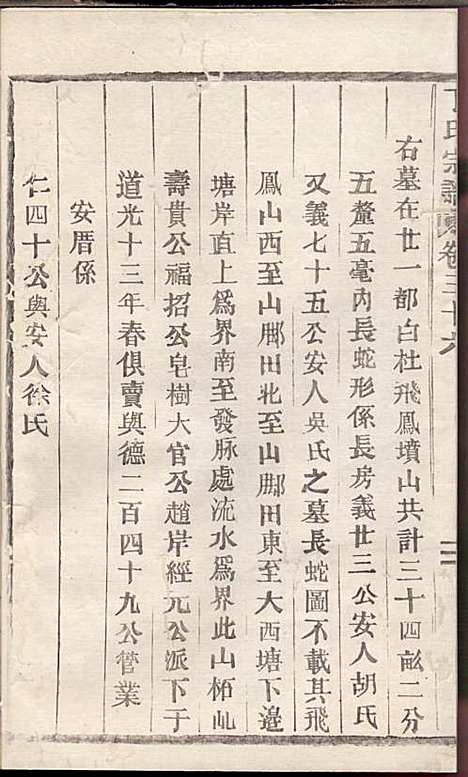 丁氏宗譜 卷三十六
右墓在廿一都白杜飛鳳墳山共計三十四畝二分
五釐五毫內長蛇形係長房義廿三公安人胡氏
又義七十五公安人吳氏之墓長蛇圖不載其飛
鳳山西至山脚田北至山脚田東至大西塘下邉
塘岸直上爲界南至發脉處流水爲界此山栢山
壽貴公福招公皂樹大官公趙岸經元公派下于
道光十三年春俱賣與德二百四十九公管業
安厝係
仁四十公與安人徐氏